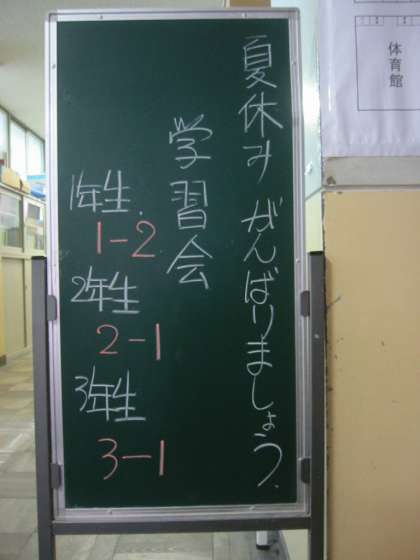 夏休みがんばりましょう.
学習会
1年生.
1-2
2年生
2-1
3年生
3-1
体育館